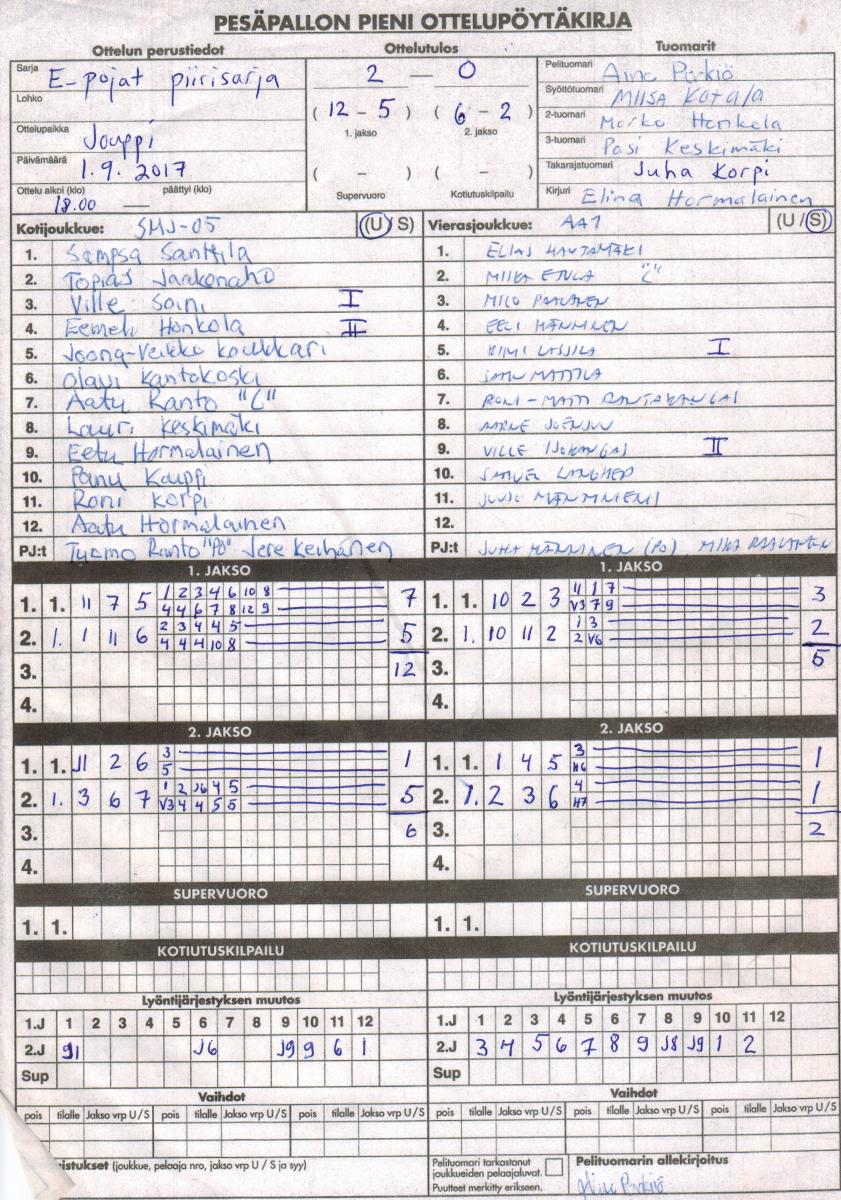 PESÄPALLON PIENI OTTELUPÖYTÄKIRJA
Ottelun perustiedot
Ottelutulos
Tuomarit
Sarja E-pojat piirisarja
Lohko
Ottelupaikka Jouppi
Päivämäärä 1.9.2017
Ottelu alkoi (klo) päättyi (klo)
18.00 —
2 — 0
(12 - 5) (6 - 2)
1. jakso 2. jakso
( - ) ( - )
Supervuoro Kotiutuskilpailu
Pelituomari Aino Parkiö
Syöttötuomari MIISA KOTAJA
2-tuomari Marko Honkola
3-tuomari Pasi Keskimäki
Takarajatuomari Juha Korpi
Kirjuri Elina Hormalainen
Kotijoukkue: SMJ-05 (U / S)
1. Sampsa Santtila
2. Topias
3. Ville Soini I
4. Eemeli Honkola II
5. Joona-Veikko Koukkari
6. Olavi Kantokoski
7. Aatu Ranto "C"
8. Lauri Keskimäki
9. Eetu Hormalainen
10. Panu Kauppi
11. Roni Korpi
12. Aatu Hormalainen
PJ:t Tuomo Ranto "PO" Jere Keihänen
Vierasjoukkue: AA1 (U / S)
1. ELIAS HAUTAMÄKI
2. MIIKA ETULA "C"
3. MILO PAALANEN
4. EELI MÄNNINEN
5. KIMI LASSILA I
6. SAMU MATTILA
7. RONI-MATTI RANTAKANGAS
8. AARNE JOENSUU
9. VILLE IJOKANGAS II
10. SAMUEL LANGHED
11.
12.
PJ:t JUHA MÄNNINEN (PO), MIKA PAALANEN
1. JAKSO
1. 1. 11 7 5 1 2 3 4 6 10 8 7
4 4 6 7 8 12 9
2. 1. 1 11 6 2 3 4 4 5 5
4 4 4 10 8
3. 12
4.
1. JAKSO
1. 1. 10 2 3 11 1 7 3
V3 7 9
2. 1. 10 11 2 1 3 2
2 V6
3. 5
4.
2. JAKSO
1. 1. J1 2 6 3 1
5
2. 1. 3 6 7 1 2 J6 4 5 5
V3 4 4 5 5
3. 6
4.
2. JAKSO
1. 1. 1 4 5 3 1
H6
2. 1. 2 3 6 4 1
H7
3. 2
4.
SUPERVUORO
1. 1.
SUPERVUORO
1. 1.
KOTIUTUSKILPAILU
KOTIUTUSKILPAILU
Lyöntijärjestyksen muutos
1.J 1 2 3 4 5 6 7 8 9 10 11 12
2.J J1 J6 J9 9 6 1
Sup
Lyöntijärjestyksen muutos
1.J 1 2 3 4 5 6 7 8 9 10 11 12
2.J 3 4 5 6 7 8 9 J8 J9 1 2
Sup
Vaihdot
pois tilalle Jakso vrp U / S pois tilalle Jakso vrp U / S
Vaihdot
pois tilalle Jakso vrp U / S pois tilalle Jakso vrp U / S pois tilalle Jakso vrp U / S
istukset (joukkue, pelaaja nro, jakso vrp U / S ja syy)
Pelituomari tarkastanut
joukkueiden pelaajaluvat.
Puutteet merkitty erikseen.
Pelituomarin allekirjoitus